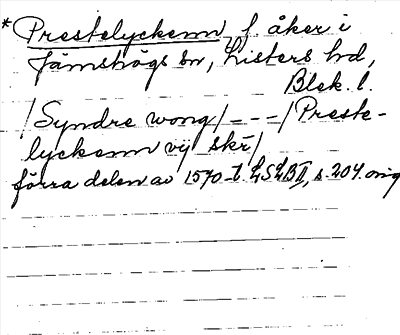 * Prestelyckenn, f. åker i
Jämshögs sn, Listers hd,
Blek. l.
/Syndre wong/ - - - /Preste-
lyckenn vij skr/
förra delen av 1570-t. LSLBII, s. 204. orig